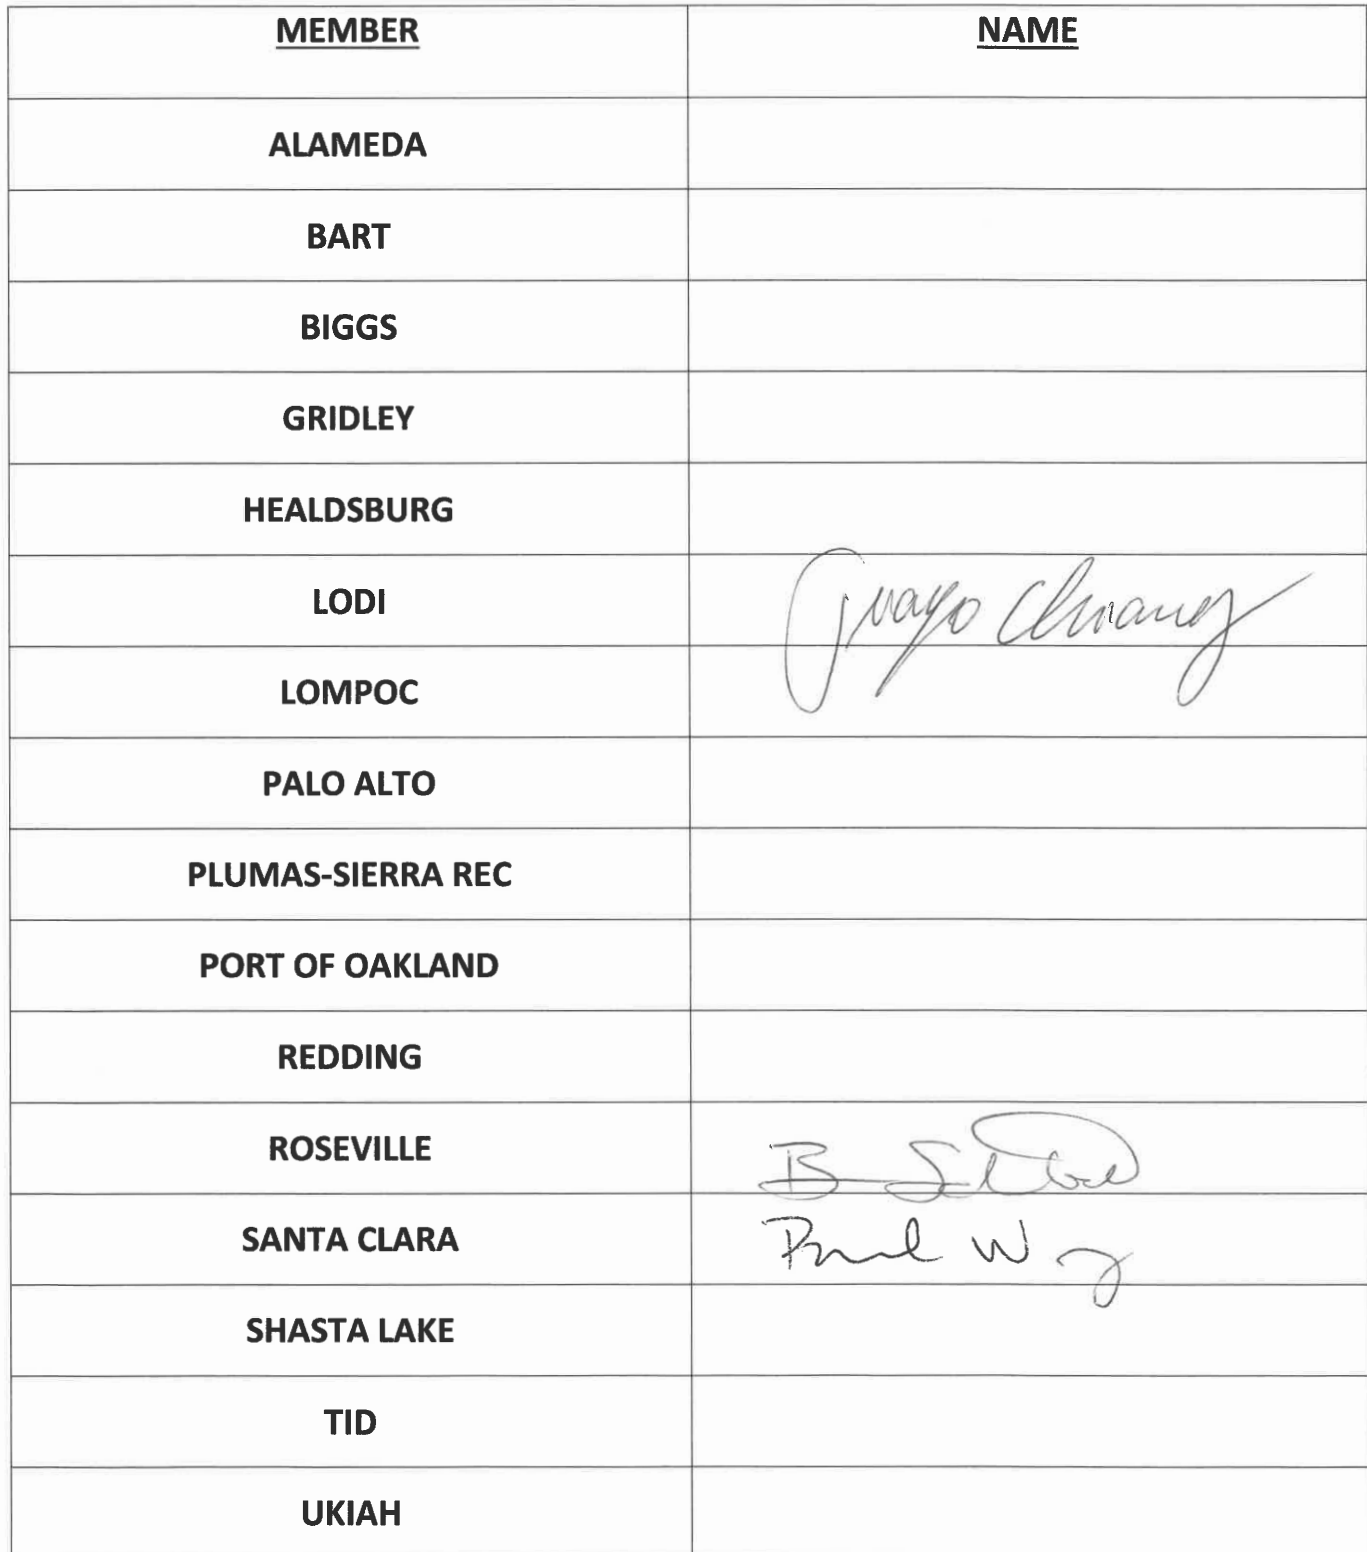 MEMBER NAME
ALAMEDA
BART
BIGGS
GRIDLEY
HEALDSBURG
LODI
LOMPOC
PALO ALTO
PLUMAS-SIERRA REC
PORT OF OAKLAND
REDDING
ROSEVILLE B
SANTA CLARA
SHASTA LAKE
TID
UKIAH